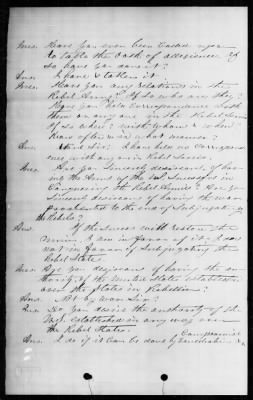 Ques. Have you ever been called upon
to take the Oath of allegiance & if
so have you done it?
Ans. I have taken it.
Ques. Have you any relations in the
Rebel Army? If so who are they?
Have you held correspondence with
them or any one in the Rebel Service
if so when? with whom? & when?
how often and what means?
Ans. None Sir. I have held no correspon-
dence with any one in Rebel Service.
Ques. Are you sincerely desirous of hav-
ing the Arms of the U.S. Successful in
Conquering the Rebel Armies? Are you
sincerely desirous of having the war
to the end of Subjugating
the Rebels?
Ans. If the success will restore the
Union, I am in favor of it. I am
not in favor of Subjugating the
Rebel States.
Ques. Are you desirous of having the au-
thority of the United States established
over the States in Rebellion?
Ans. Not by war Sir?
Ques. Do you desire the authority of the
U.S. established in any way over
the Rebel States.
Ans. I do if it can be done by
Compromise